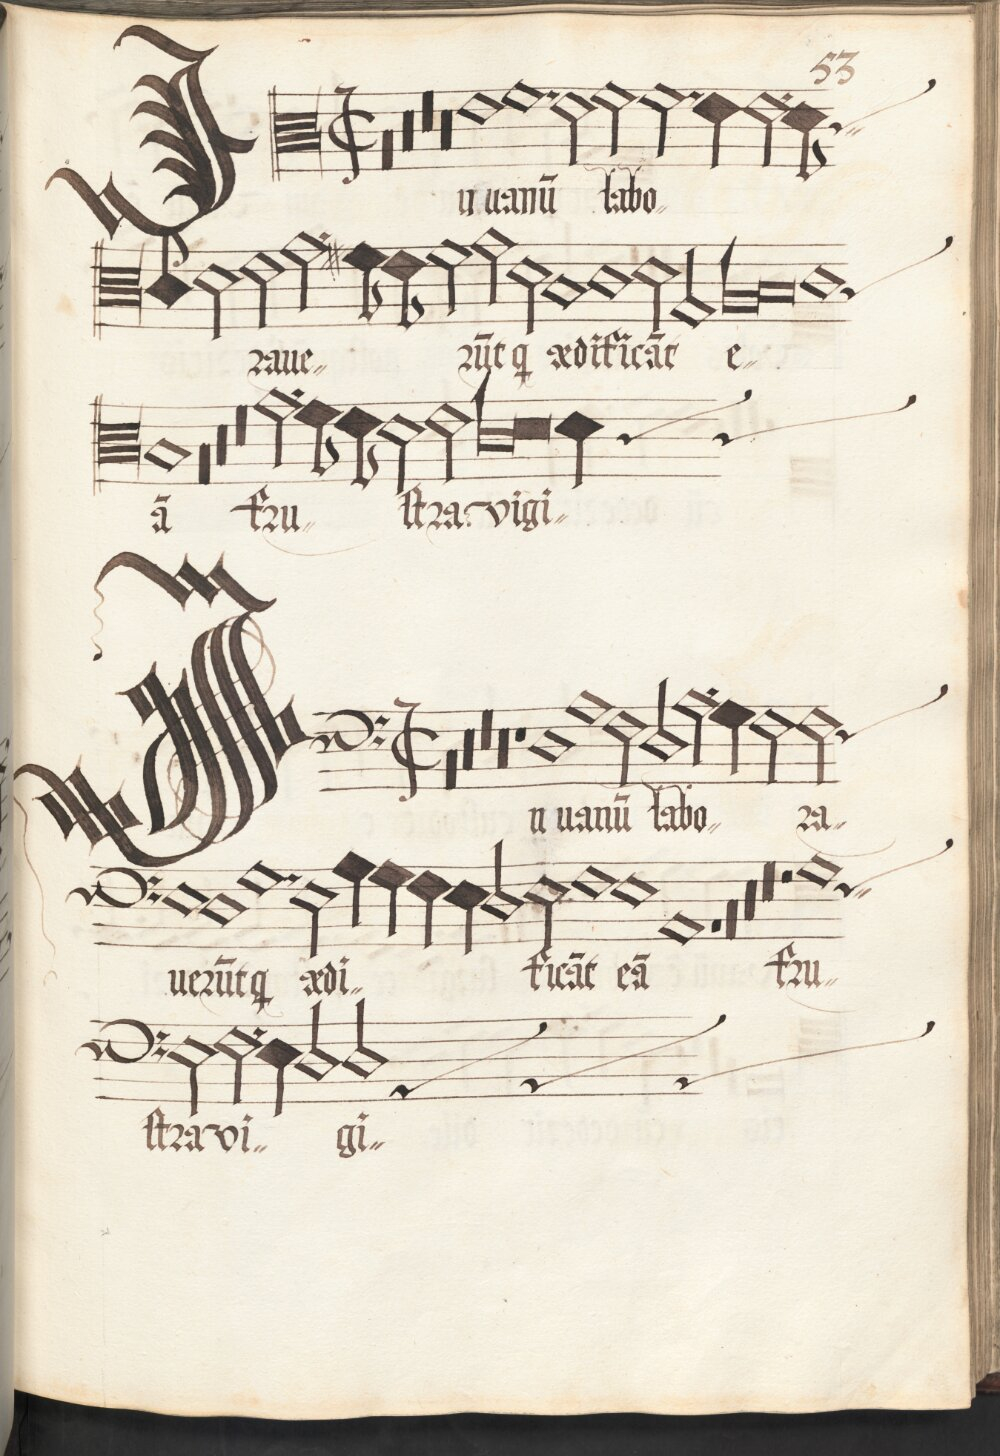 53
In uanū labo
raue rūt q̨ ædificāt e
ā fru stra vigi
In uanū labo ra
uerūt q̨ ædi ficāt eā fru
stra vi gi